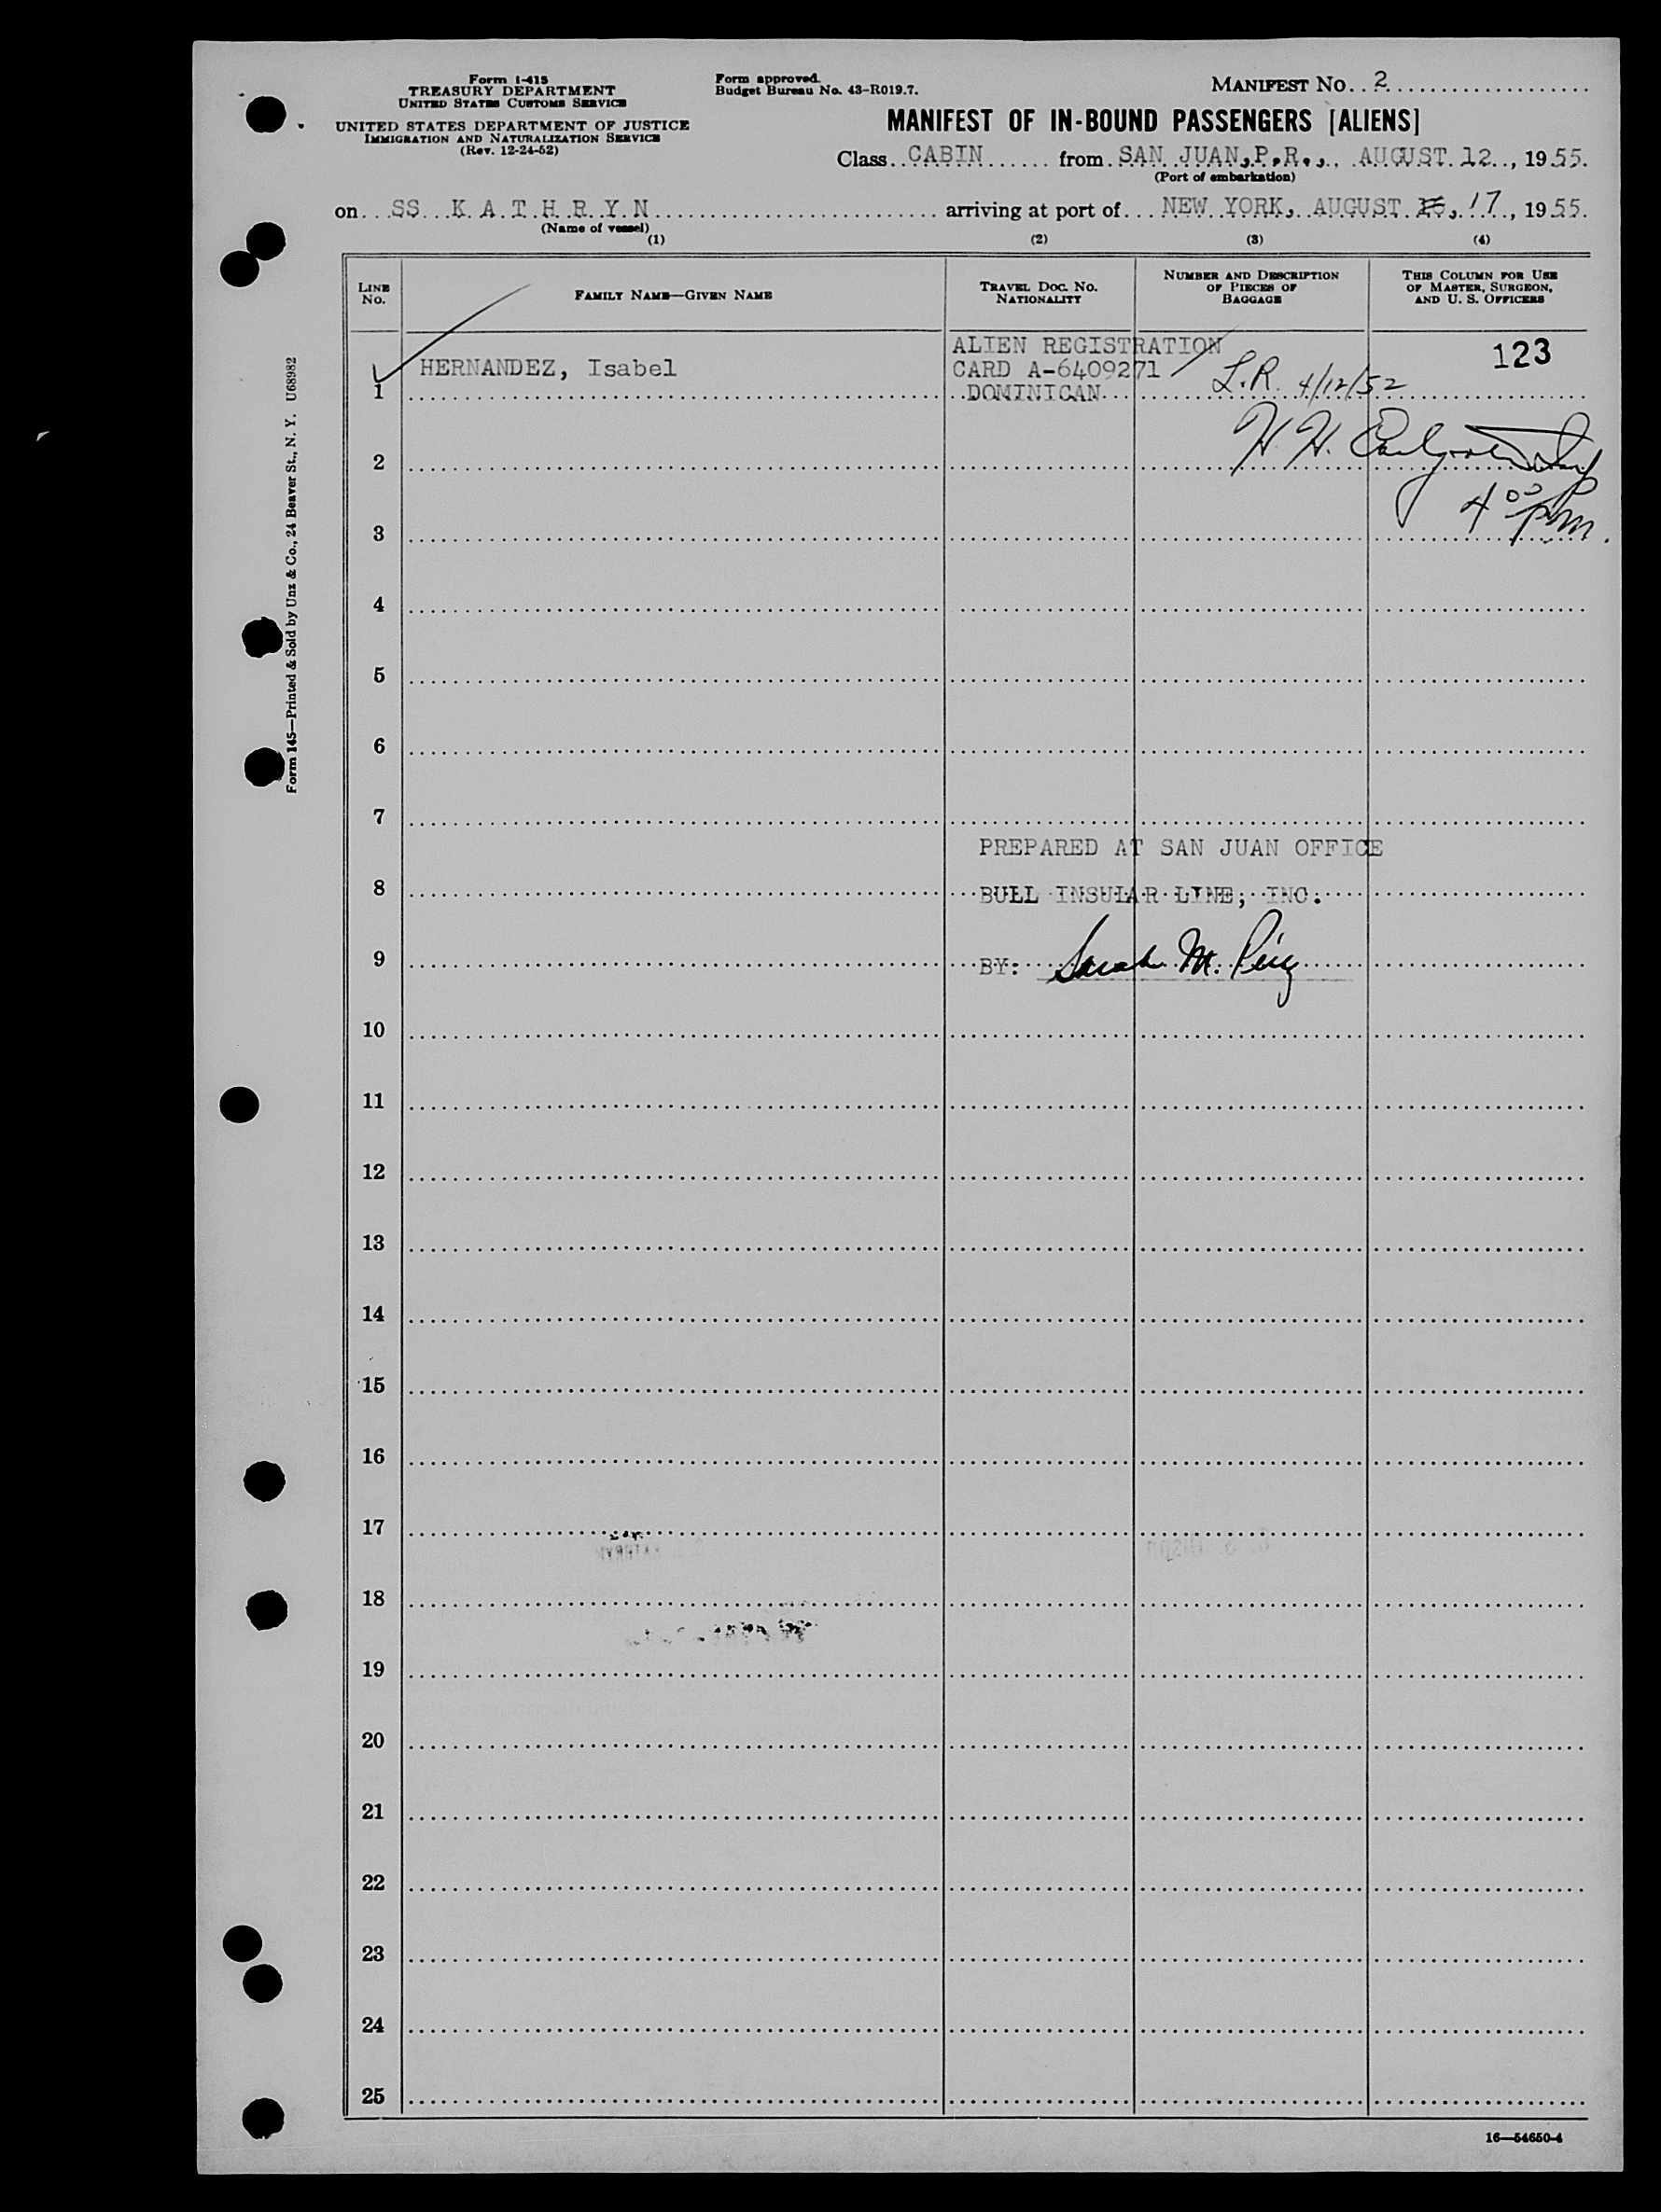 Form I-415
TREASURY DEPARTMENT
UNITED STATES CUSTOMS SERVICE
UNITED STATES DEPARTMENT OF JUSTICE
IMMIGRATION AND NATURALIZATION SERVICE
(Rev. 12-24-52)
Form approved.
Budget Bureau No. 43-R019.7.
MANIFEST No. 2
MANIFEST OF IN-BOUND PASSENGERS [ALIENS]
Class CABIN from SAN JUAN, P.R., AUGUST 12, 1955.
(Port of embarkation)
on SS K A T H R Y N arriving at port of NEW YORK, AUGUST 17, 1955.
(Name of vessel)
(1) (2) (3) (4)
LINE No.
FAMILY NAME—GIVEN NAME
TRAVEL DOC. NO. NATIONALITY
NUMBER AND DESCRIPTION OF PIECES OF BAGGAGE
THIS COLUMN FOR USE OF MASTER, SURGEON, AND U. S. OFFICERS
ALIEN REGISTRATION
123
HERNANDEZ, Isabel CARD A-6409271 L.R. 4/12/52
1 DOMINICAN
2 H. H.
3 4 00 pm.
4
5
6
7
PREPARED AT SAN JUAN OFFICE
8 BULL INSULAR LINE, INC.
9 BY: Sarah M.
10
11
12
13
14
15
16
17
18
19
20
21
22
23
24
25
16—54650-4
Form 145—Printed & Sold by Unz & Co., 24 Beaver St., N. Y. U68982